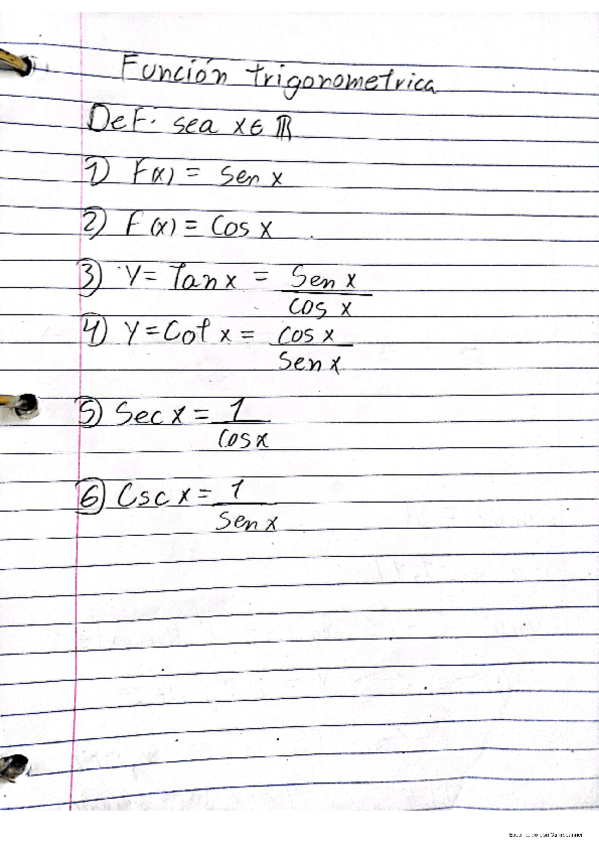 Función trigonometrica
DeF: sea x∈ ℝ
1) F(x) = Sen x
2) F(x) = Cos x
3) Y= Tan x = Sen x / cos x
4) Y=Cot x = cos x / Sen x
5) Sec x = 1 / cos x
6) Csc x = 1 / Sen x